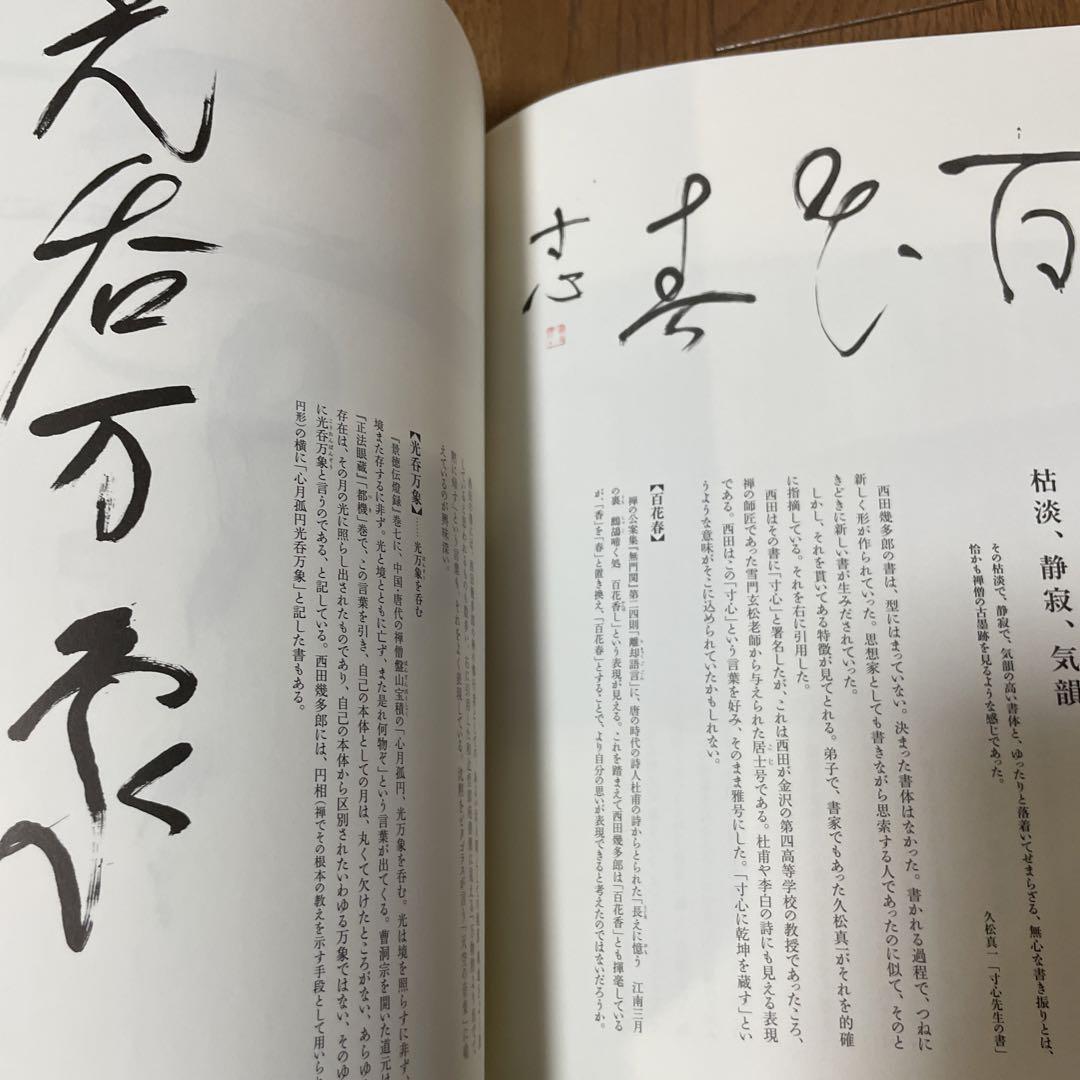 百花春
寸心
枯淡、静寂、気韻
その枯淡で、静寂で、気韻の高い書体と、ゆったりと落着いてせまらざる、無心な書き振りとは、
恰かも禅僧の古墨跡を見るような感じであった。
久松真一「寸心先生の書」
西田幾多郎の書は、型にはまっていない。決まった書体はなかった。書かれる過程で、つねに
新しく形が作られていった。思想家としても書きながら思索する人であったのに似て、そのと
きどきに新しい書が生みだされていった。
しかし、それを貫いてある特徴が見てとれる。弟子で、書家でもあった久松真一がそれを的確
に指摘している。それを右に引用した。
西田はその書に「寸心」と署名したが、これは西田が金沢の第四高等学校の教授であったころ、
禅の師匠であった雪門玄松老師から与えられた居士号である。杜甫や李白の詩にも見える表現
である。西田はこの「寸心」という言葉を好み、そのまま雅号にした。「寸心に乾坤を蔵す」とい
うような意味がそこに込められていたかもしれない。
【百花春】
禅の公案集『無門関』第二四則「離却語言」に、唐の時代の詩人杜甫の詩からとられた「長えに憶う 江南三月
の裏 鷓鴣啼く処 百花香し」という表現が見える。これを踏まえて西田幾多郎は「百花香」とも揮毫している
が、「香」を「春」と置き換え、「百花春」とすることで、より自分の思いが表現できると考えたのではないだろうか。
光呑万象
えているのが興味深い。
【光呑万象】……光万象を呑む
『景徳伝燈録』巻七に、中国・唐代の禅僧盤山宝積の「心月孤円、光万象を呑む。光は境を照らすに非ず、
境また存するに非ず。光と境とともに亡ず、また是れ何物ぞ」という言葉が出てくる。曹洞宗を開いた道元は
『正法眼蔵』「都機」巻で、この言葉を引き、自己の本体としての月は、丸くて欠けたところがない、あらゆ
存在は、その月の光に照らし出されたものであり、自己の本体から区別されたいわゆる万象ではない、そのゆ
に光呑万象と言うのである、と記している。西田幾多郎には、円相（禅でその根本の教えを示す手段として用いら
円形）の横に「心月孤円光呑万象」と記した書もある。